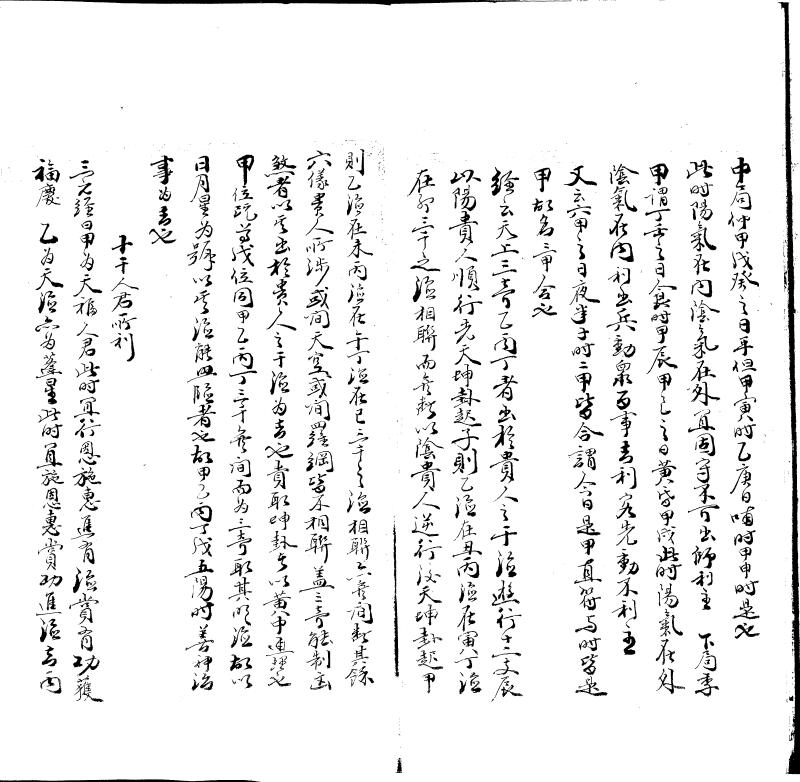 中局仲甲戊癸之日平但甲寅时乙庚日晡时甲申时是也
此时陽氣在内陰氣在外宜固守不可出师利主 下局季
甲謂丁壬之日食时甲辰甲己之日黄昏甲戌此时陽氣在外
陰氣在内利出兵動衆百事吉利客先動不利主
又云六甲之日夜半子时二甲皆合謂今日是甲直符与时皆是
甲故名三甲合也
經云天上三奇乙丙丁者出於貴人之干德遊行十二支辰
以陽貴人順行先天坤卦起子則乙德在丑丙德在寅丁德
在卯三干之德相聯而無間以陰貴人逆行後天坤卦起申
則乙德在未丙德在午丁德在巳三干之德相聯亦無間其餘
六儀貴人所涉或间天空或间羅網皆不相聯盖三奇能制凶
煞者以其出於貴人之干德为吉也貴取坤卦者以黄中通理也
甲位既尊戊位同甲乙丙丁三干無间而为三奇取其明德故以
日月星为號以其德能照臨者也故甲乙丙丁戊五陽时善神治
事为吉也
十干人君所利
三元經曰甲为天福人君此时宜行恩施惠進有德賞有功獲
福慶 乙为天德亦为蓬星此时宜施恩惠賞功進德吉 丙